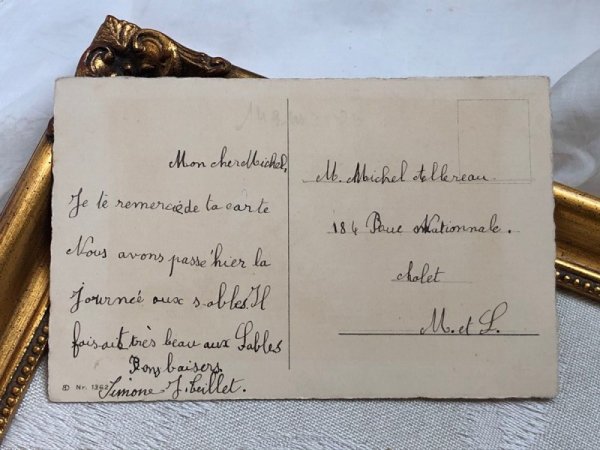 Mon cher Michel,
Je te remercie de ta carte
Nous avons passé hier la
Journeé aux sables. Il
faisait très beau aux Sables
Bons baisers
Simone
Nr. 1362
M. Michel Allereau
184 Rue Nationale.
cholet
M. et L.